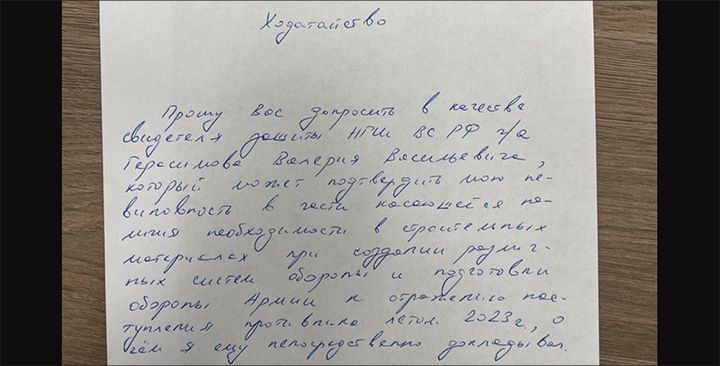 Ходатайство
Прошу Вас допросить в качества
свидетеля защиты НГШ ВС РФ г/а
Герасимова Валерия Васильевича,
который может подтвердить мою не-
виновность в части касающейся на-
личия необходимости в строительных
материалах при создании различ-
ных систем обороны и подготовки
обороны Армии к отражению нас-
тупления противника летом 2023 г., о
чём я ему непосредственно докладывал.